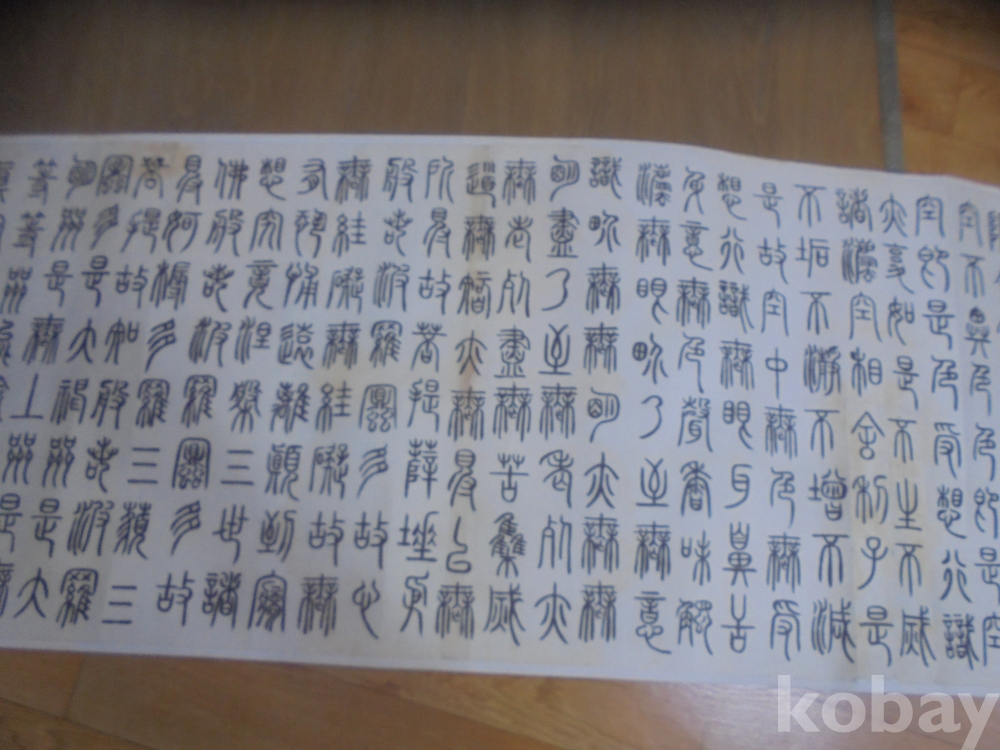 空不異色色即是空
空即是色受想行識
亦復如是不生不滅
諸法空相舍利子是
不垢不淨不增不減
是故空中無色無受
想行識無眼耳鼻舌
身意無色聲香味觸
法無眼界乃至無意
識界無無明亦無無
明盡乃至無老死亦
無老死盡無苦集滅
道無智亦無得以無
所得故菩提薩埵依
般若波羅蜜多故心
無罣礙無罣礙故無
有恐怖遠離顛倒夢
想究竟涅槃三世諸
佛般若波羅蜜多故
得阿耨多羅三藐三
菩提故知般若波羅
蜜多是大神咒是大
明咒是無上咒是無
等等咒
kobay